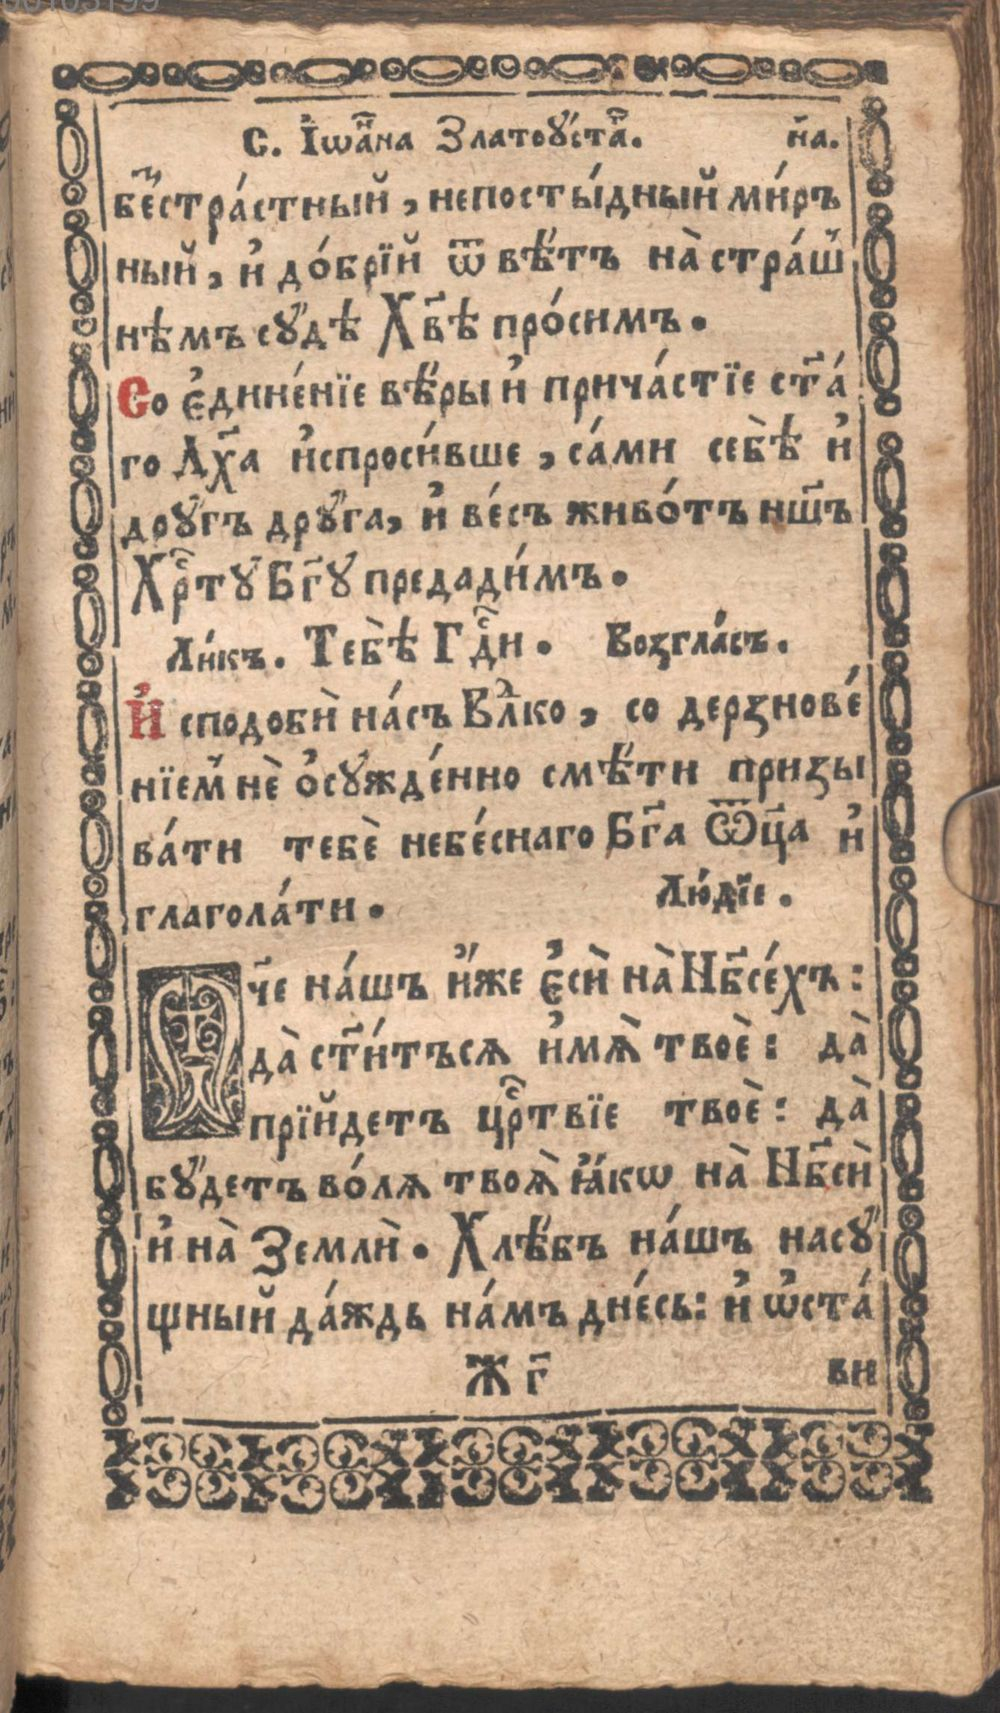 С. І҆ѡа҃нна Златоу́ста҃. н҃а.
бе҃стра́стный, непосты́дный ми́ръ
ный, и҆ до́брїй ѿвѣ́тъ на̀ стра́ш
нѣмъ сꙋ́дѣ Хв҃ѣ про́симъ.
Со є҆дине́нїе вѣ́ры и҆ прича́стїе ст҃а́
го Дх҃а и҆спроси́вше, са́ми себѐѣ и҆
дрꙋ́гъ дрꙋ́га, и҆ ве́съ живо́тъ нш҃ъ
Хр҃тꙋ Бг҃ꙋ предади́мъ.
Ли́къ. Тебѐѣ Гд҃и. Возгла́съ.
И҆ сподоби̾ на́съ Вл҃ко, со дерзнове́
нїем̾ нѐ о҆сꙋжде́нно смѣ́ти призы
ва́ти тебѐ небе́снаго Бг҃а Ѿц҃а и҆
глагола́ти. Лю́дїе.
Ѿч҃е на́шъ и҆́же є҆сѝ на̀ Нб҃се́хъ:
да̀ ст҃и́тъсѧ и҆мѧ̀ твоѐ: да̀
прїйдетъ цр҃твїе твоѐ: да̀
бꙋ́детъ во́лѧ твоѧ̀ ꙗ҆́кѡ на̀ Нб҃сѝ
и҆ на̀ Землѝ. Хлѣ́бъ на́шъ насꙋ́
щный да́ждь на́мъ дне́сь: и҆ ѡ҆ста́
Ж г҃ ви